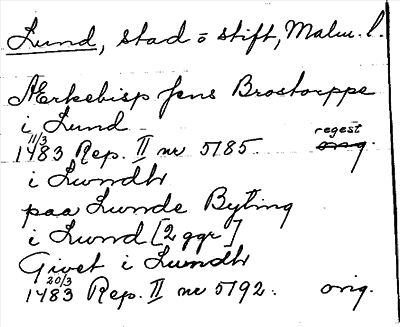 Lund, stad o stift, Malm. l.
Ærkebisp Jens Brostorppe
i Lund
11/3 regest
1483 Rep. II nr 5185. orig.
i Lwndh
paa Lunde Byting
i Lund [2 ggr]
Givet i Lundh
20/3
1483 Rep. II nr 5192. orig.